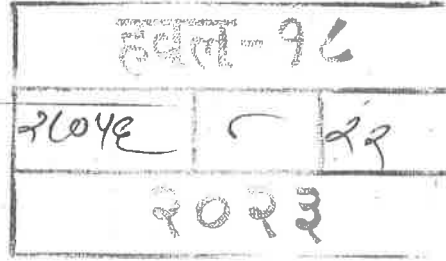 हवल-१८
२८०५६ ८ २२
२०२३